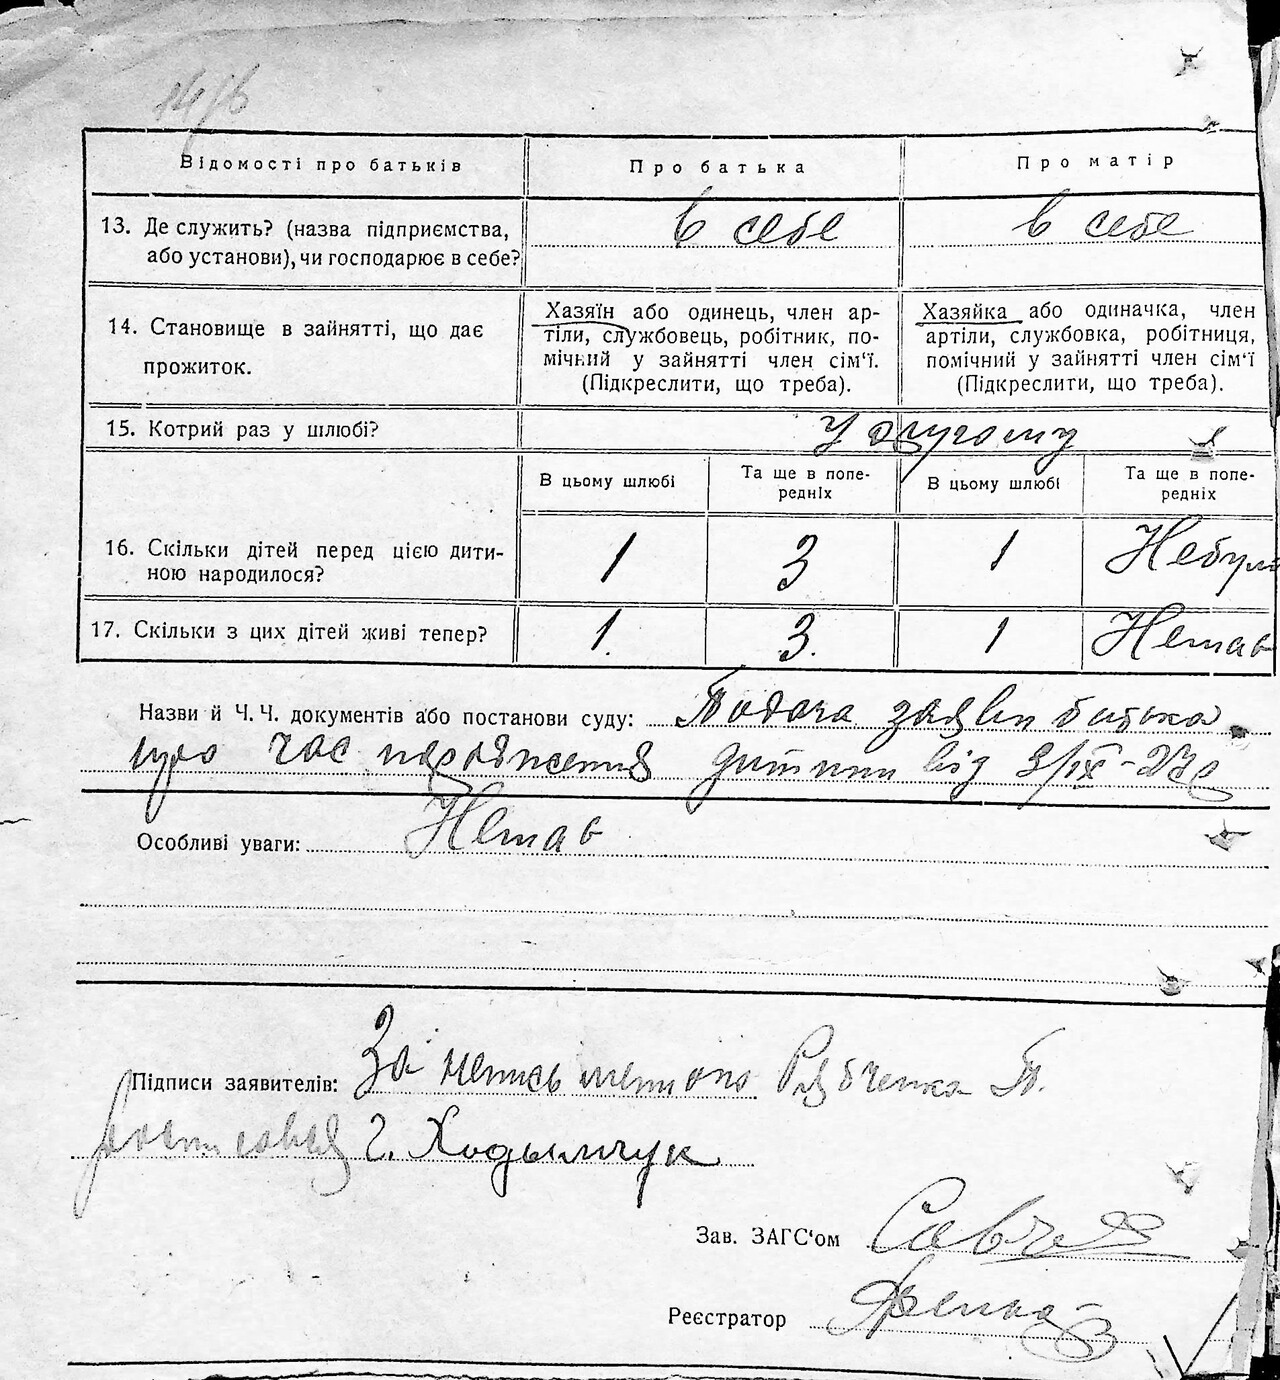 14/6
Відомості про батьків Про батька Про матір
13. Де служить? (назва підприємства, в себе в себе
або установи), чи господарює в себе?
Хазяїн або одинець, член ар- Хазяйка або одиначка, член
14. Становище в зайнятті, що дає тіли, службовець, робітник, по- артіли, службовка, робітниця,
прожиток. мічний у зайнятті член сім'ї. помічний у зайнятті член сім'ї
(Підкреслити, що треба). (Підкреслити, що треба).
15. Котрий раз у шлюбі? У другому
В цьому шлюбі Та ще в попе- В цьому шлюбі Та ще в попе-
редніх редніх
16. Скільки дітей перед цією дити- 1 3 1 Небуло
ною народилося?
17. Скільки з цих дітей живі тепер? 1. 3. 1 Немає
Назви й Ч. Ч. документів або постанови суду: Подача заяви батька
про час народження дитини від 9/IX-27 р
Особливі уваги: Немає
Підписи заявителів: За неписьменого Рябченка Т.
росписався Г. Ходымчук
Зав. ЗАГС'ом
Реєстратор